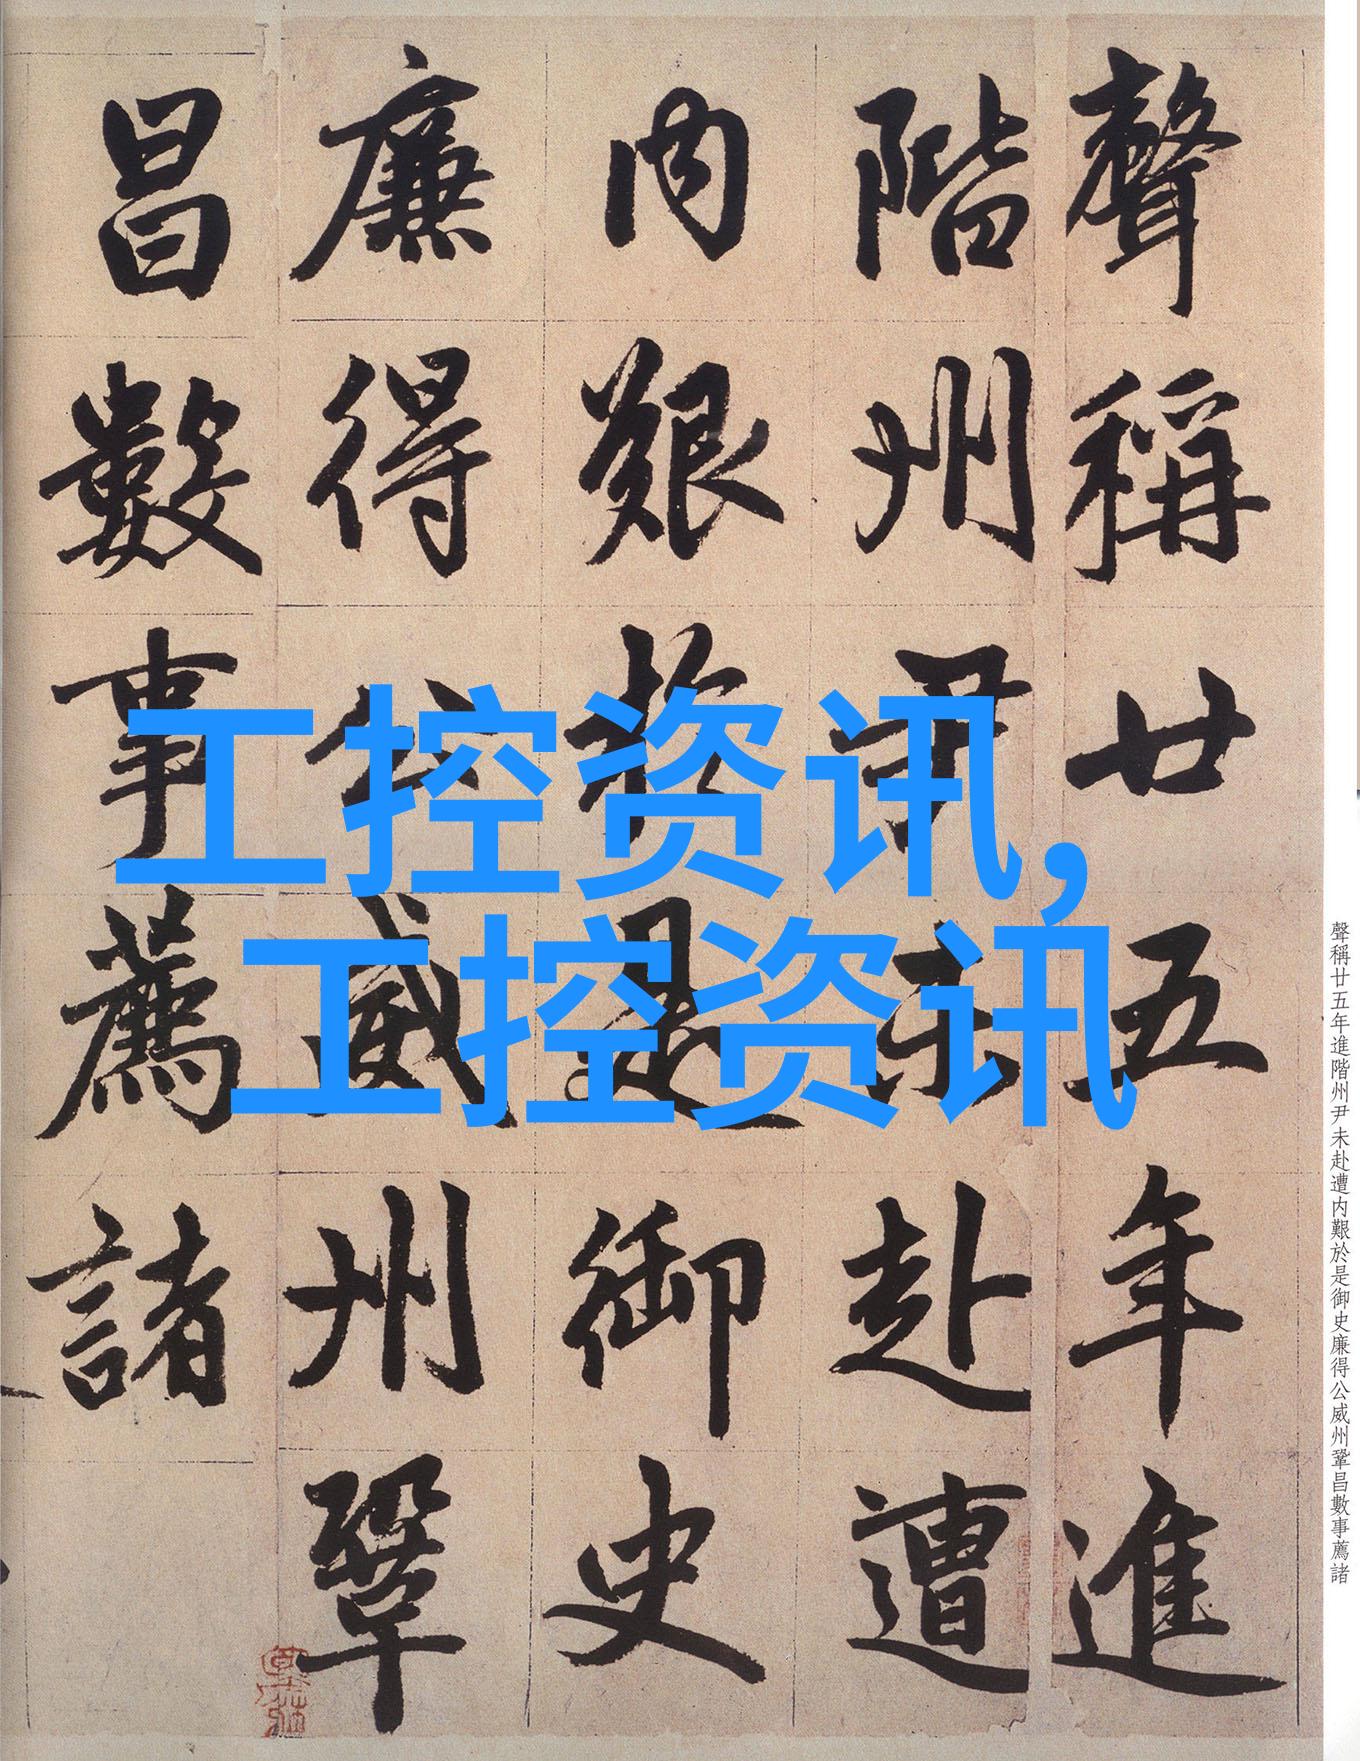 聲稱廿五年進
階州尹未赴遭
内艱於是御史
廉得公威州鞏
昌數事薦諸
工控资讯,
工控资讯
聲稱廿五年進階州尹未赴遭内艱於是御史廉得公威州鞏昌數事薦諸